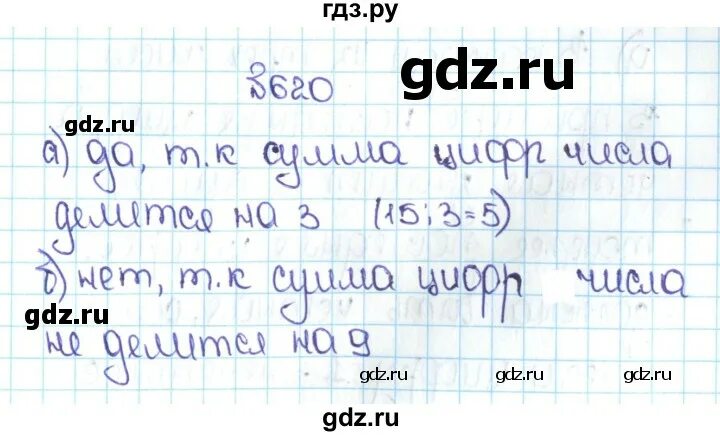 гдз.ру
gdz.ru
№620
gdz.ru
а) да, т.к сумма цифр числа
делится на 3 (15:3=5)
б) нет, т.к сумма цифр числа
gdz.ru
не делится на 9
gdz.ru gdz.ru gdz.ru
gdz.ru